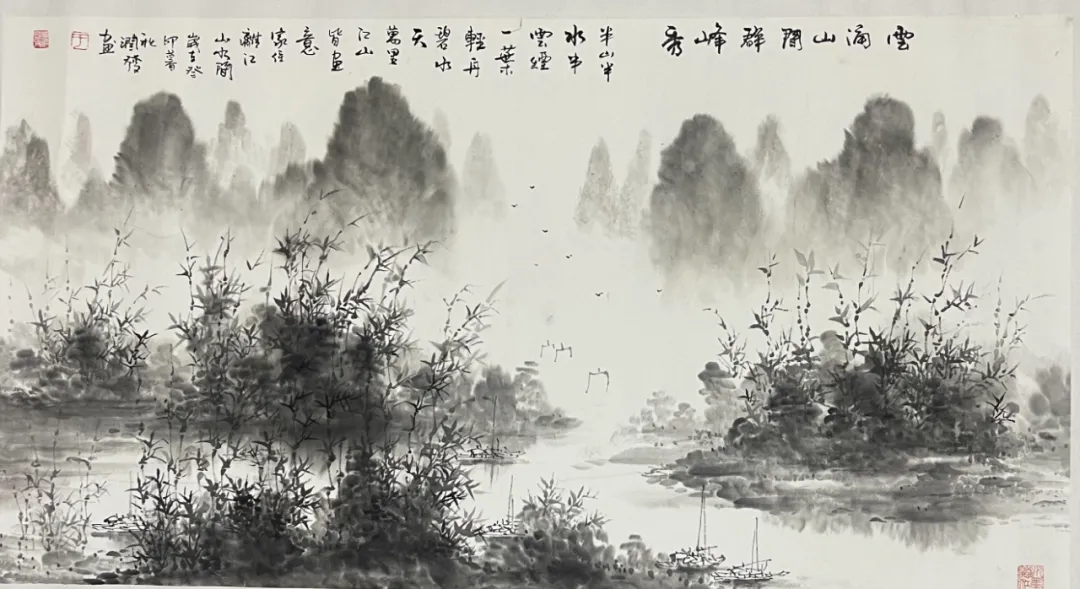 雲涌山間群峰秀
半山半
水半
雲煙
一葉
輕舟
碧水
天
萬里
江山
皆畫
意
家住
灕江
山水間
歲在癸
卯
畫